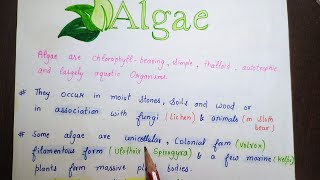 Algae
Algae are chlorophyll-bearing, simple, thalloid, autotrophic
and largely aquatic Organisms.
# They occur in moist stones, soils and wood or
in association with fungi (Lichen) & animals (in sloth
bear)
# Some algae are unicellular, Colonial form (Volvox)
filamentous form (Ulothrix Spirogyra) & a few marine (Kelps)
plants form massive plant bodies.